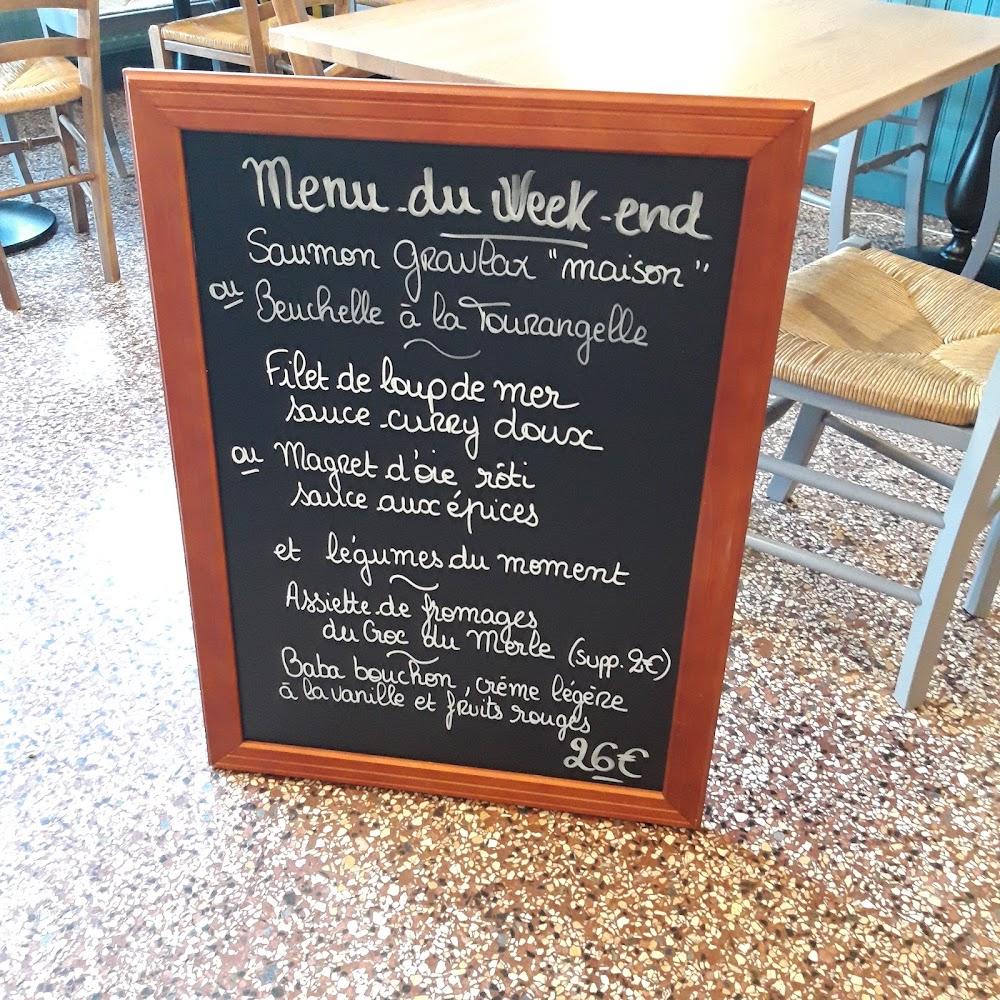 Menu du Week-end
Saumon Gravlax "maison"
ou Beuchelle à la Tourangelle
Filet de loup de mer
sauce curry doux
ou Magret d'oie rôti
sauce aux épices
et légumes du moment
Assiette de fromages
du Croc du Merle (supp. 2€)
Baba bouchon, crème légère
à la vanille et fruits rouges
26€